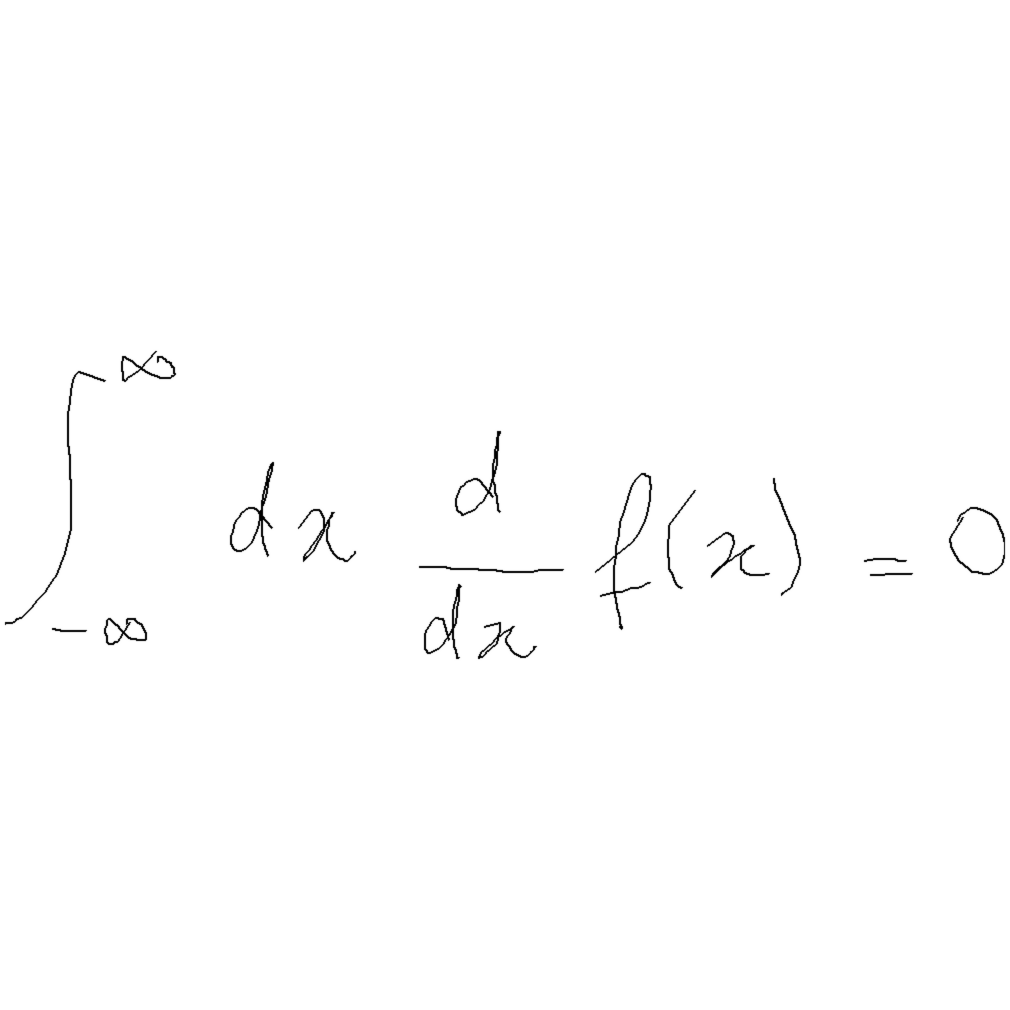 \int_{-\infty}^{\infty} dx \frac{d}{dx} f(x) = 0